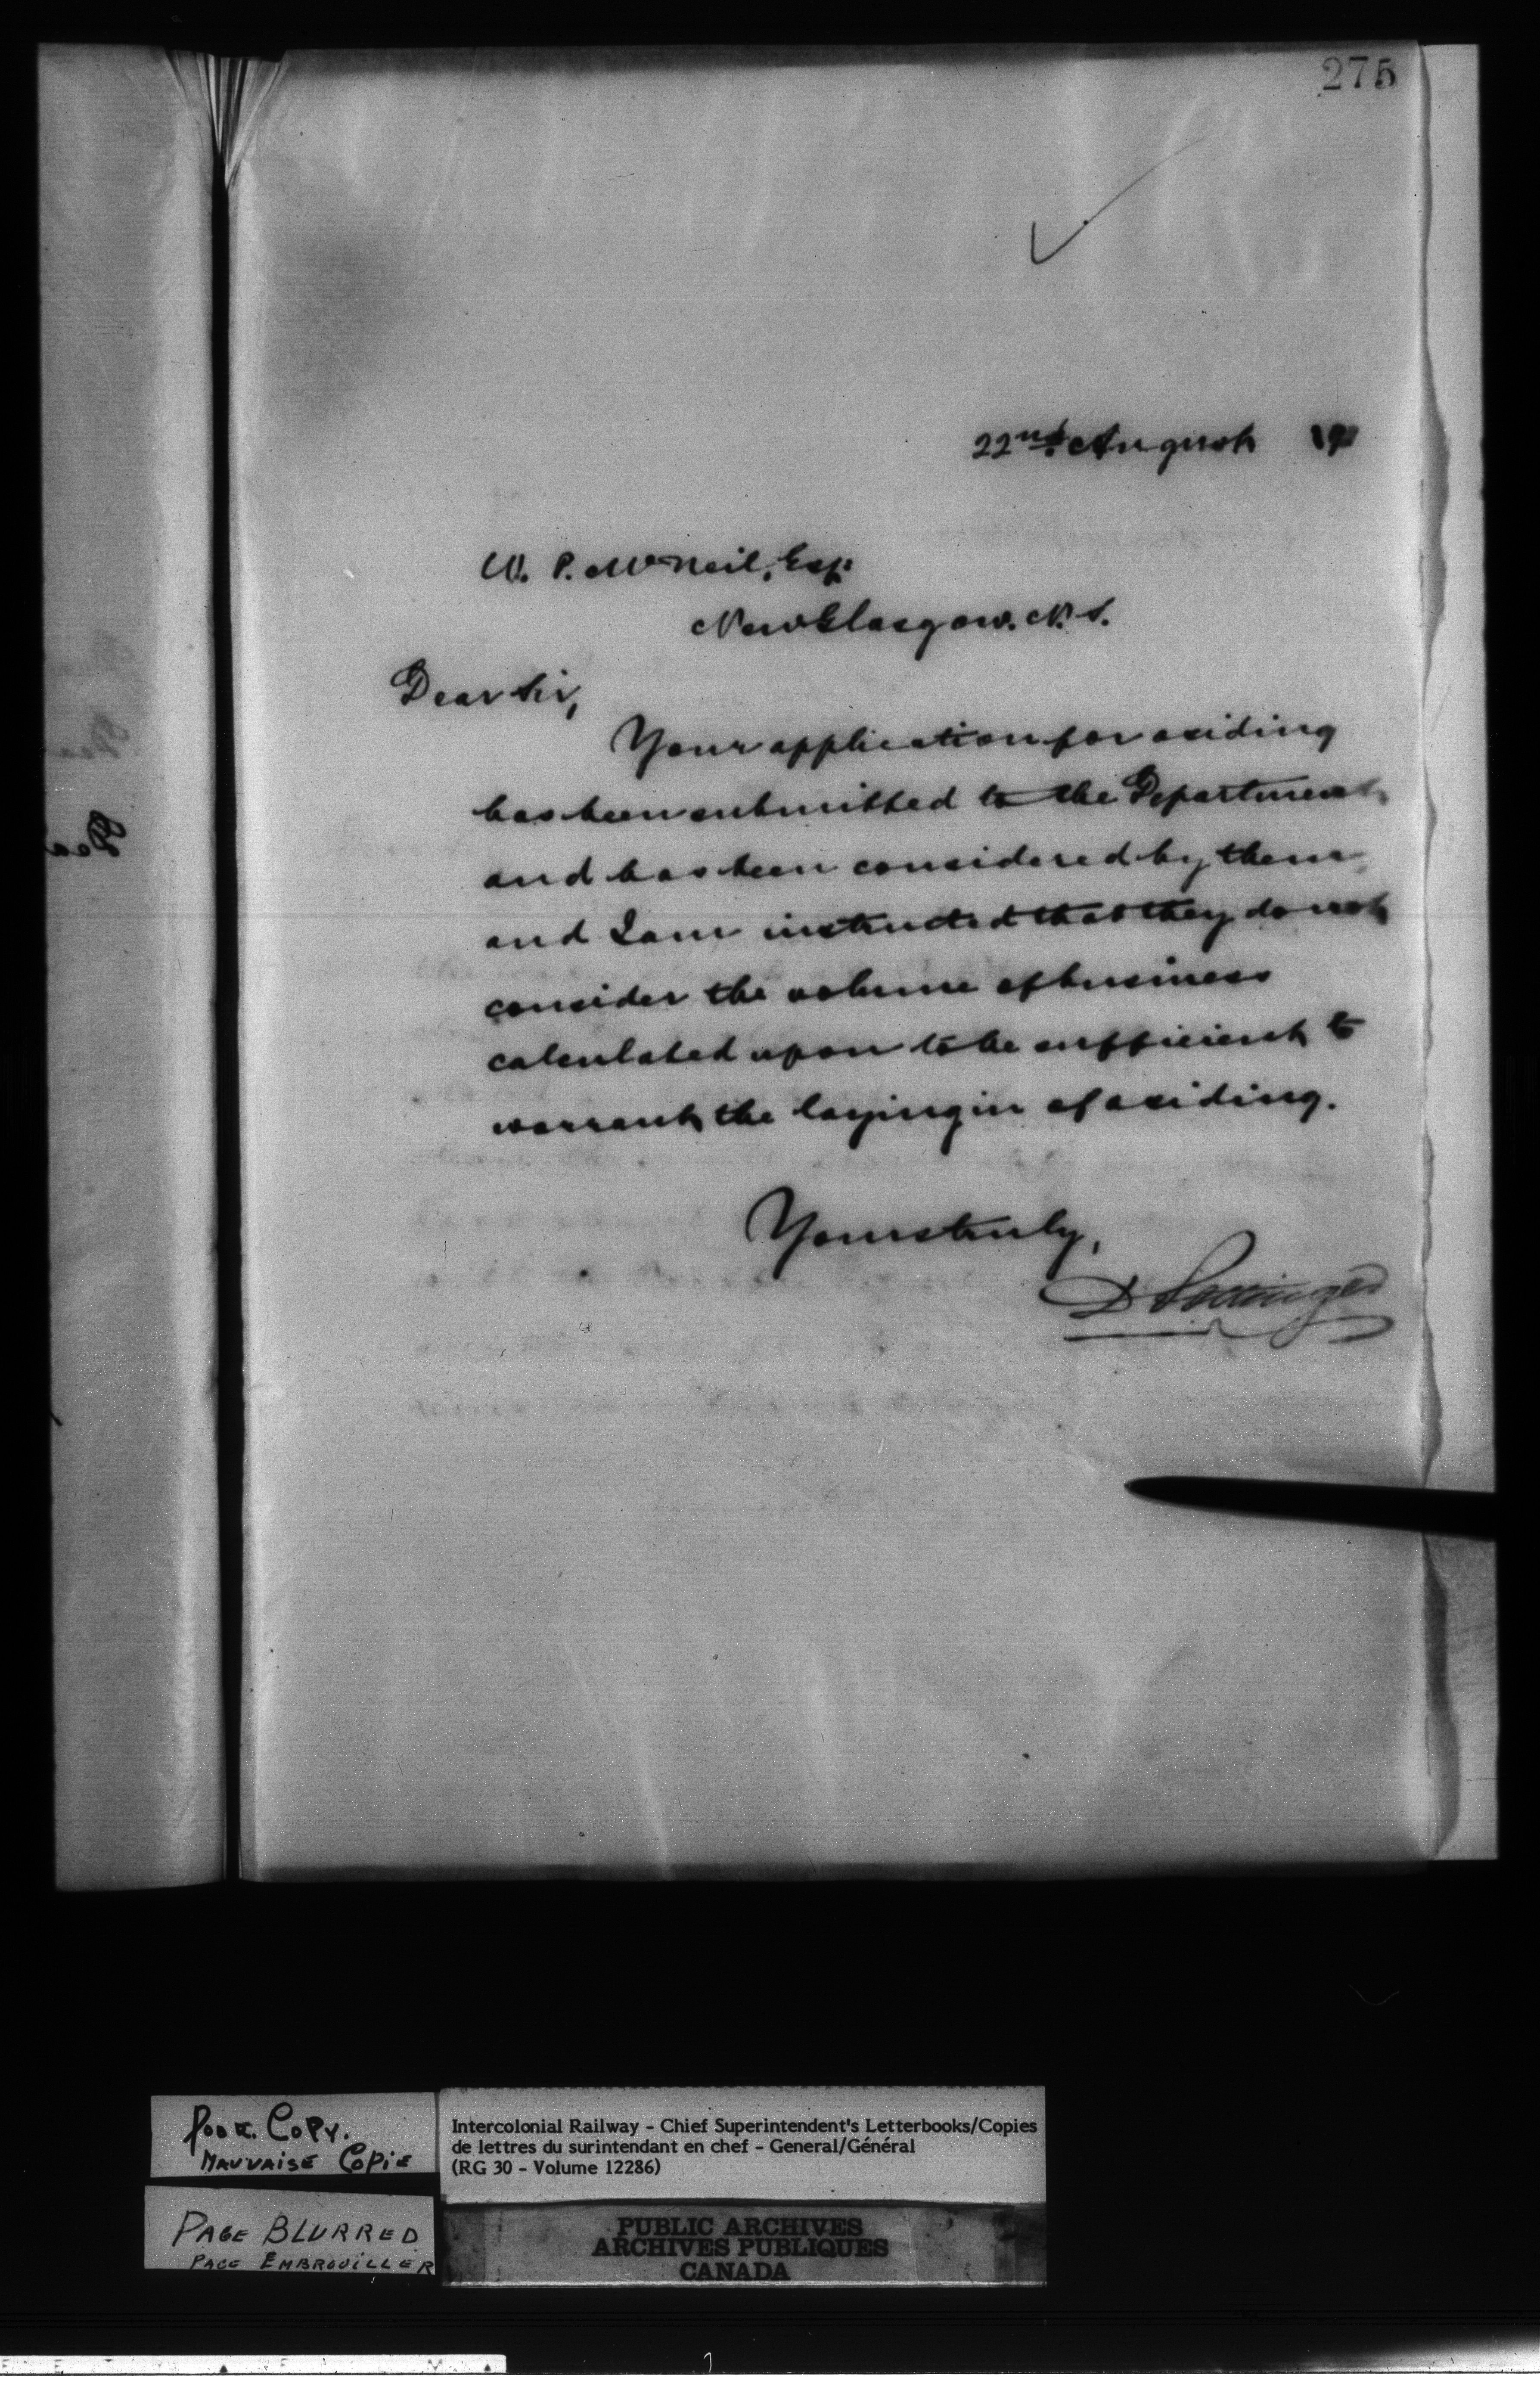 275
22nd August
W. P. McNeil, Esq.
New Glasgow. N. S.
Dear Sir,
Your application for a siding
has been submitted to the Department
and has been considered by them
and I am instructed that they do not
consider the volume of business
calculated upon to be sufficient to
warrant the laying in of a siding.
Yours truly,
D Pottinger
Poor Copy.
Mauvaise Copie
Page Blurred
Page Embrouiller
Intercolonial Railway - Chief Superintendent's Letterbooks/Copies
de lettres du surintendant en chef - General/Général
(RG 30 - Volume 12286)
PUBLIC ARCHIVES
ARCHIVES PUBLIQUES
CANADA